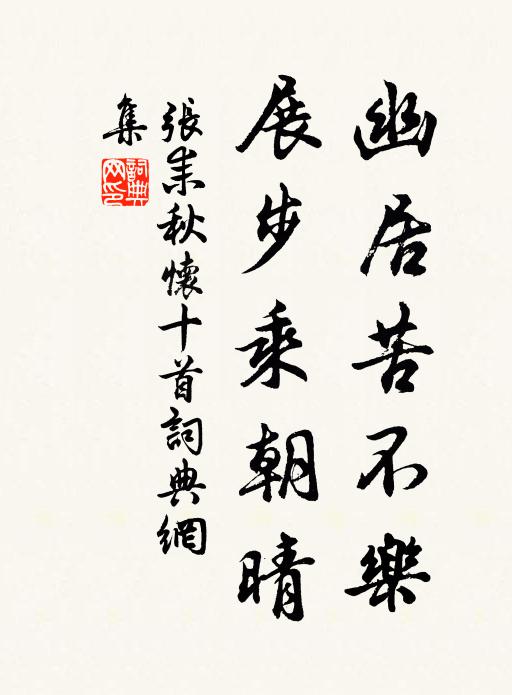 幽居苦不樂
展步乘朝晴
張耒秋懷十首詞典網
集
詞典網印